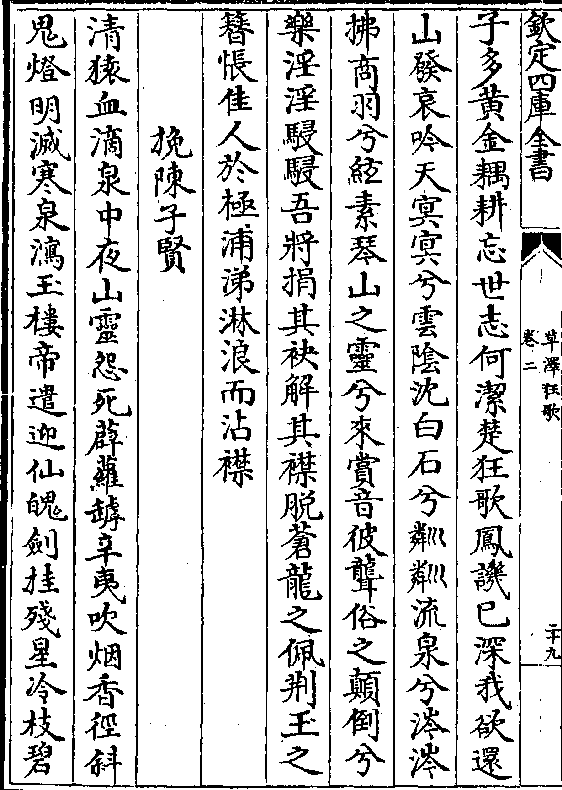 欽定四庫全書
草澤狂歌
卷二
二十九
子多黃金耦耕忘世志何潔楚狂歌鳳譏已深我欲還
山發哀吟天冥冥兮雲陰沈白石兮粼粼流泉兮涔涔
拂商羽兮絃素琴山之靈兮來賞音彼聾俗之顛倒兮
樂淫淫駸駸吾將捐其袂解其襟脱蒼龍之佩荆玉之
簪悵佳人於極浦涕淋浪而沾襟
挽陳子賢
清猿血滴泉中夜山靈怨死薜蘿罅辛夷吹烟香徑斜
鬼燈明滅寒泉瀉玉樓帝遣迎仙魄劍挂殘星冷枝碧